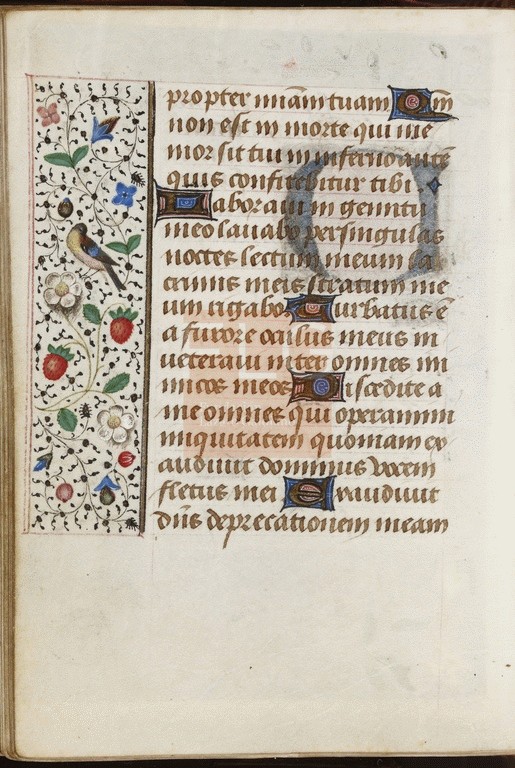 propter miã tuam Qm̃
non est in morte qui me
mor sit tui in inferno autẽ
quis confitebitur tibi
Laboraui in gemitu
meo lauabo per singulas
noctes lectum meum la
crimis meis stratum me
um rigabo Turbatus ẽ
a furore oculus meus in
ueteraui inter omnes ini
micos meos Discedite a
me omnes qui operamini
iniquitatem quoniam ex
audiuit dominus vocem
fletus mei Exaudiuit
dñs deprecationem meam